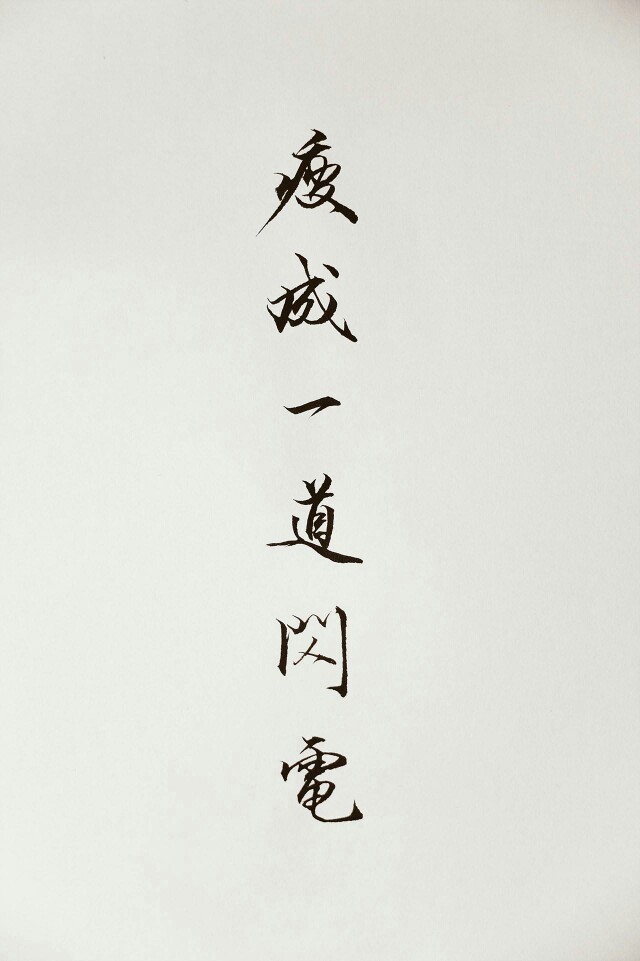 瘦成一道閃電